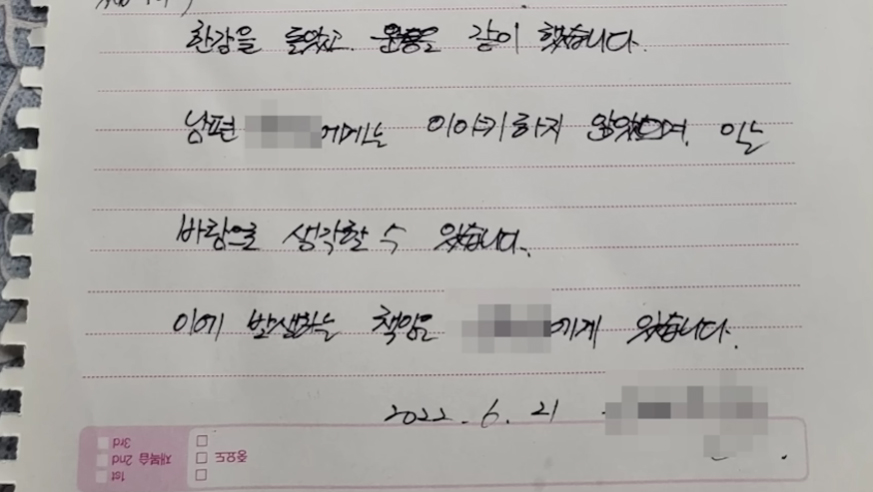 한강을 들었고 운동을 같이 했습니다.
남편 에게는 이야기하지 않았으며, 이는
바람으로 생각할 수 있습니다.
이에 발생하는 책임은 에게 있습니다.
2022. 6. 21
중요도
재복습 2nd
1st
3rd